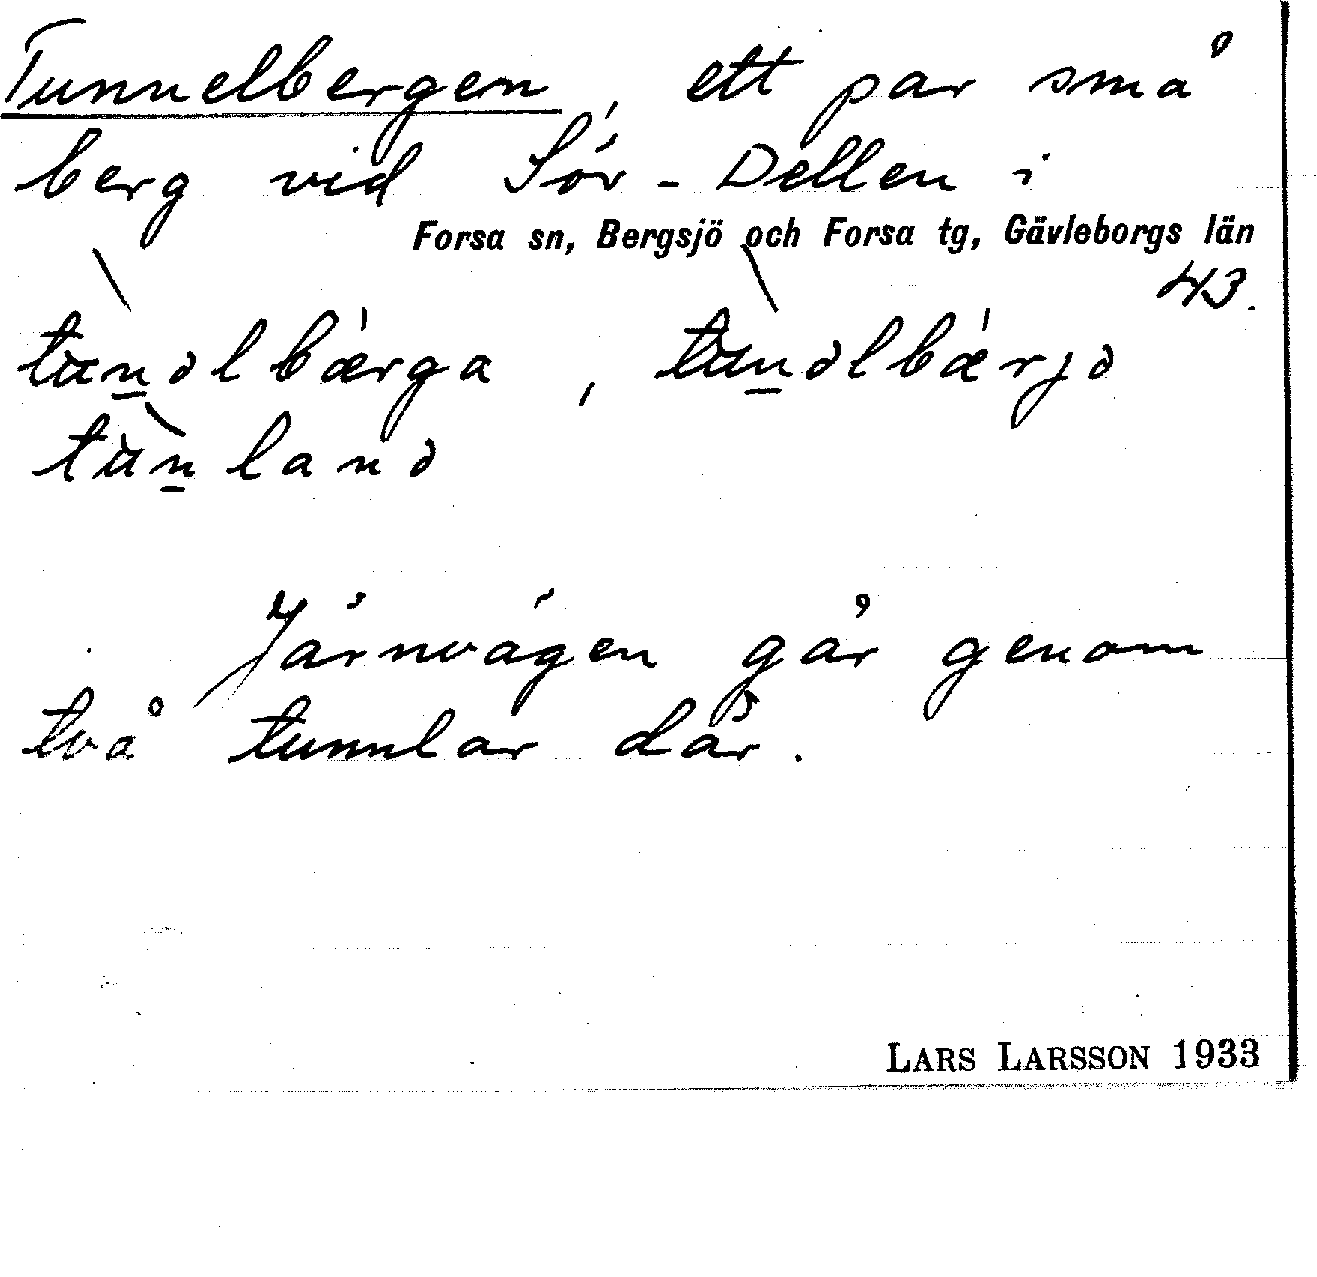 Tunnelbergen, ett par små
berg vid Sör-Dellen i
Forsa sn, Bergsjö och Forsa tg, Gävleborgs län
43.
tùn̲əlbærga, tùn̲əlbærjə
tùn̲lanə
Järnvägen går genom
två tunnlar där.
LARS LARSSON 1933